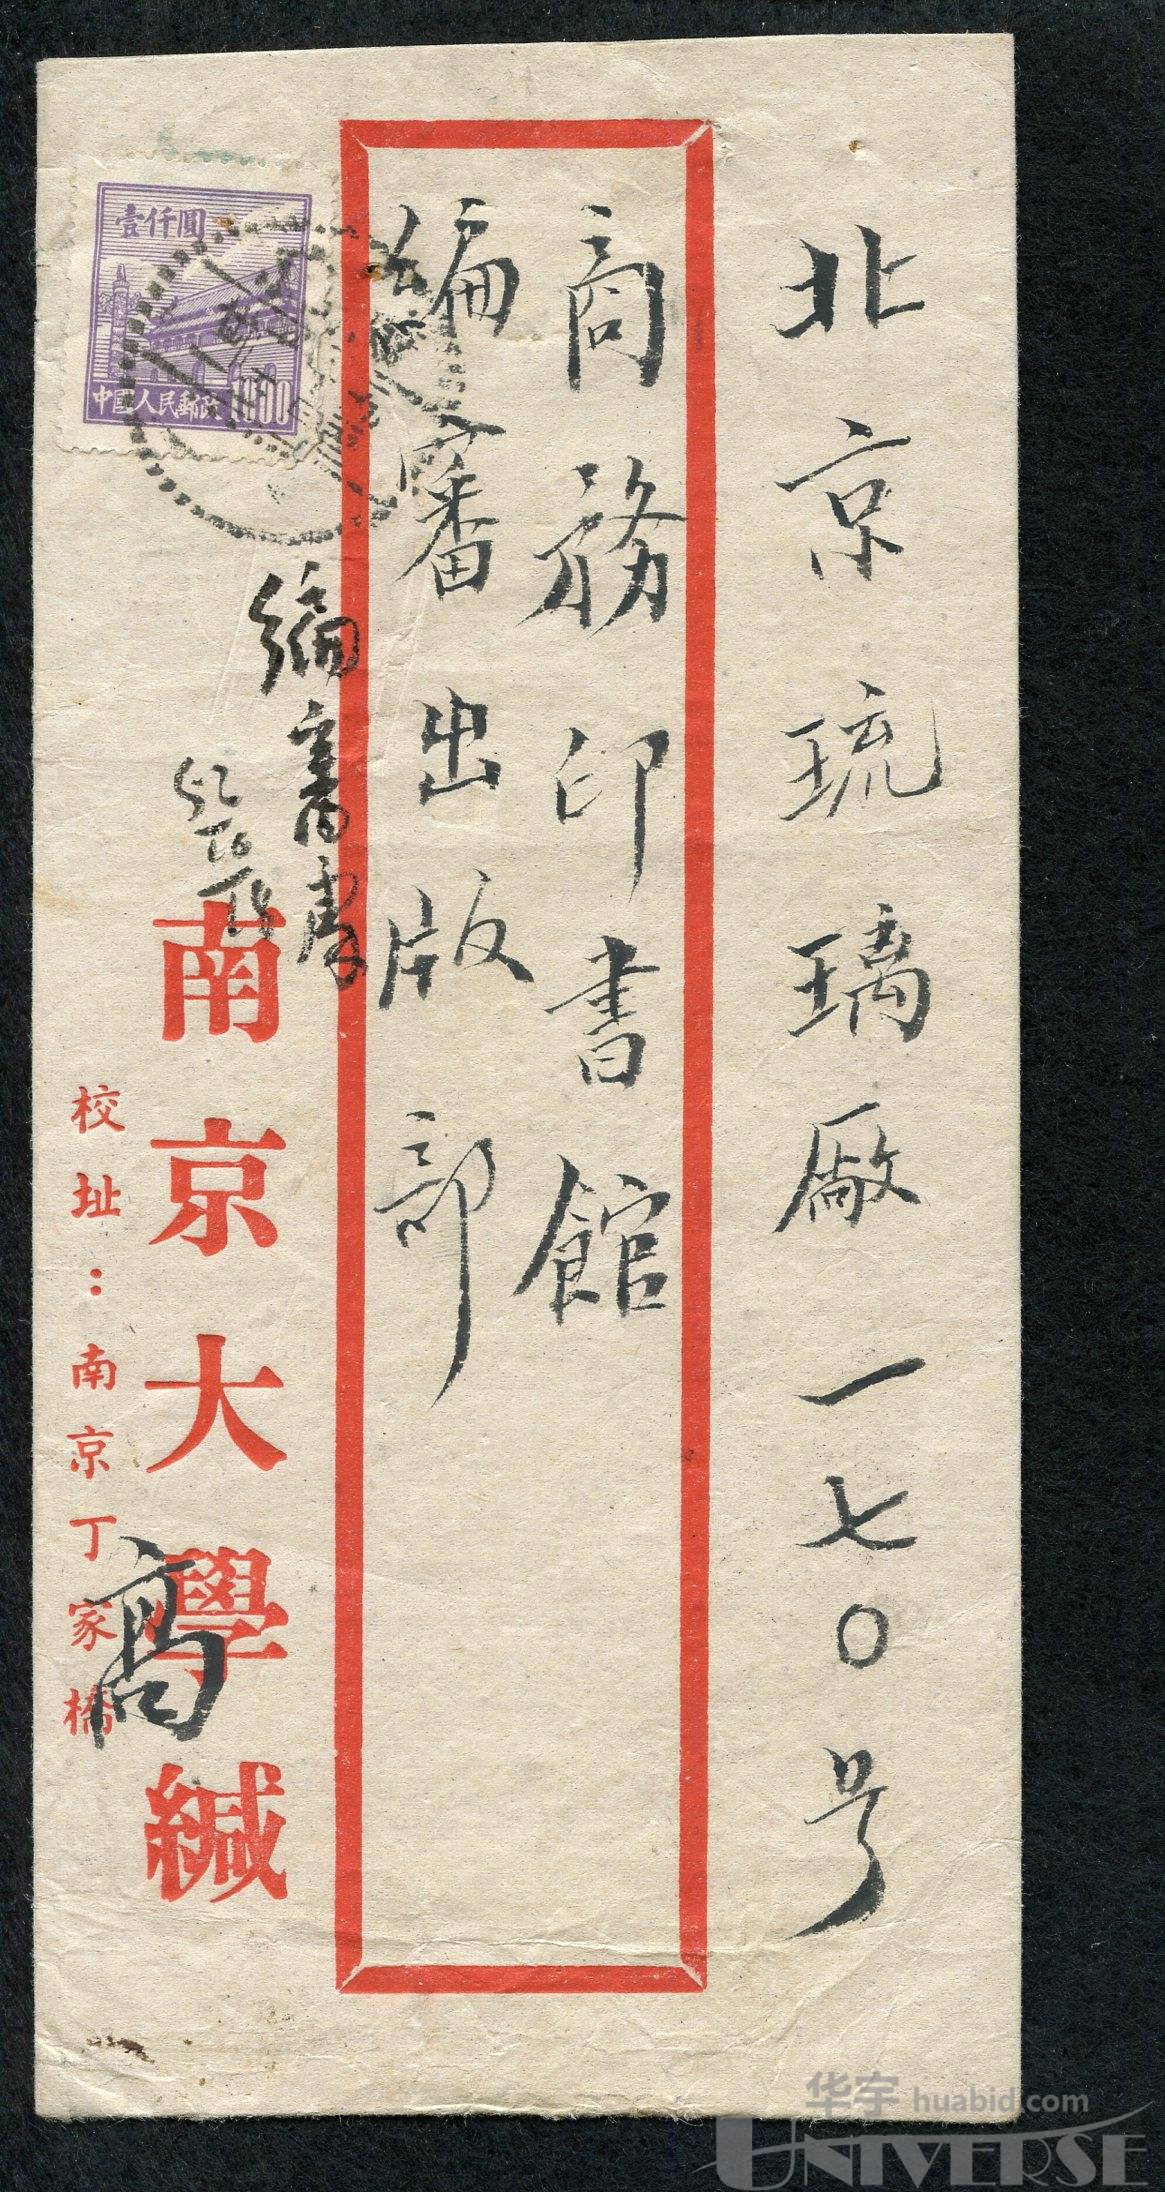 北京琉璃廠一七〇号
商務印書館
編審出版部
壹仟圓
中國人民郵政
1000
編審處
南京大學緘
高
校址：南京丁家橋
华宇 huabid.com
UNIVERSE